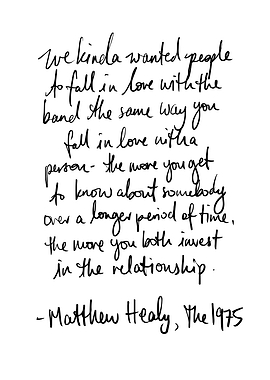 we kinda wanted people
to fall in love with the
band the same way you
fall in love with a
person - the more you get
to know about somebody
over a longer period of time,
the more you both invest
in the relationship.
- Matthew Healy, The 1975